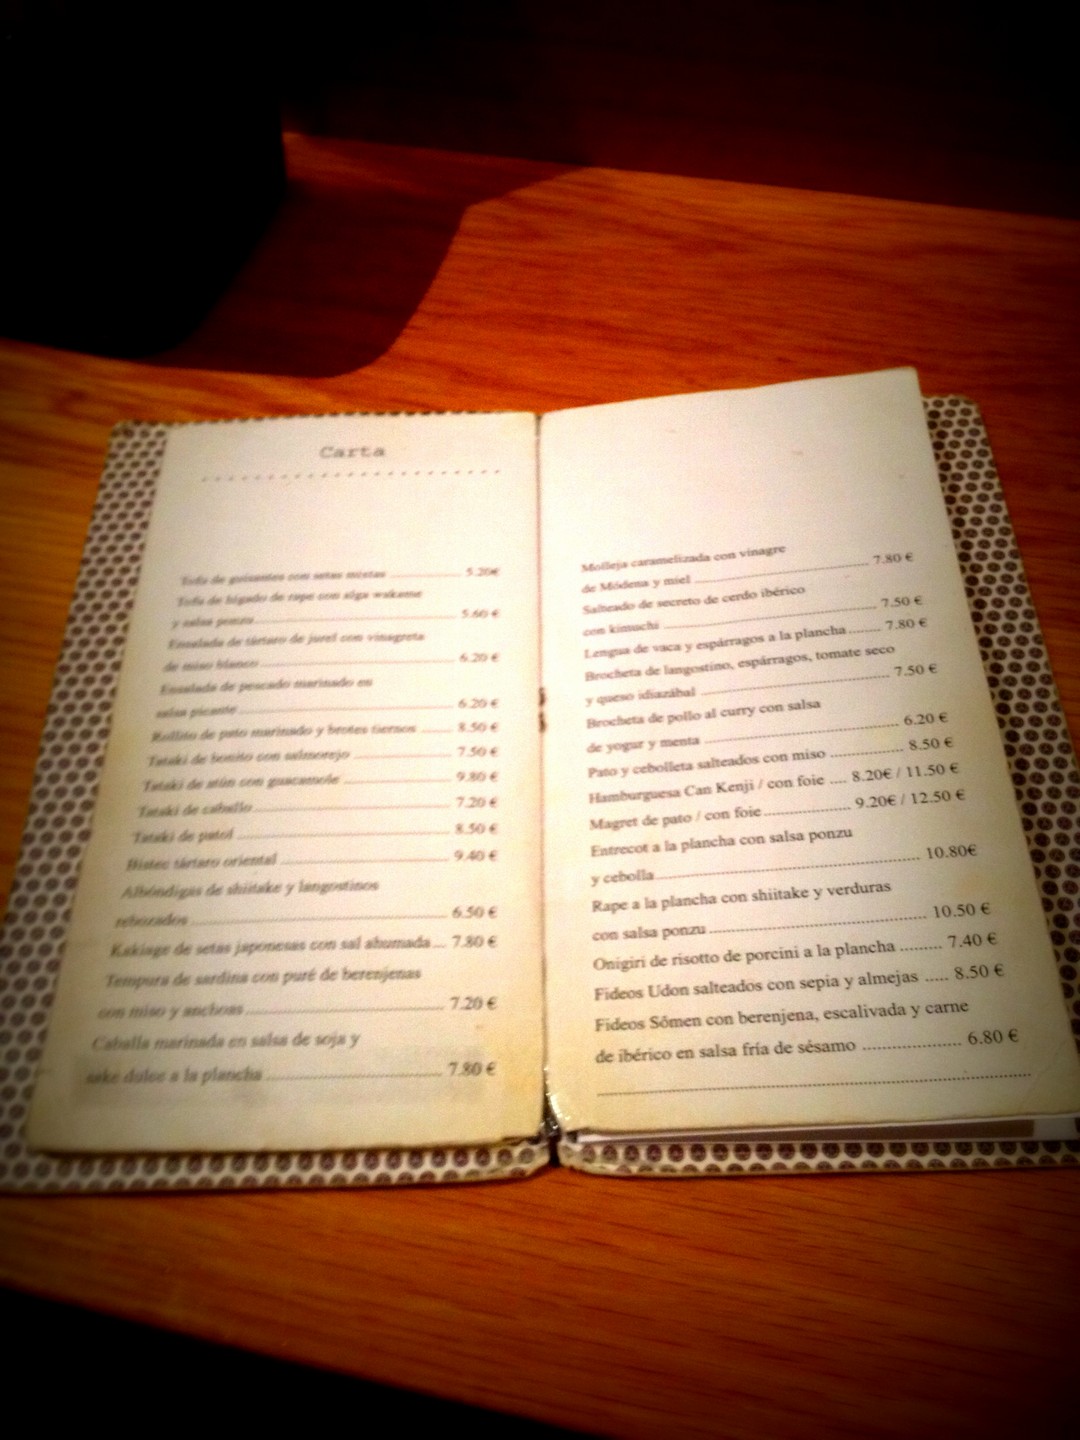 Carta
Tofu de guisantes con setas mixtas ........ 5.20€
Tofu de hígado de rape con alga wakame
y salsa ponzu ........ 5.60 €
Ensalada de tártaro de jurel con vinagreta
de miso blanco ........ 6.20 €
Ensalada de pescado marinado en
salsa picante ........ 6.20 €
Rollito de pato marinado y brotes tiernos ........ 8.50 €
Tataki de bonito con salmorejo ........ 7.50 €
Tataki de atún con guacamole ........ 9.80 €
Tataki de caballo ........ 7.20 €
Tataki de pato ........ 8.50 €
Bistec tártaro oriental ........ 9.40 €
Albóndigas de shiitake y langostinos
rebozados ........ 6.50 €
Kakiage de setas japonesas con sal ahumada ... 7.80 €
Tempura de sardina con puré de berenjenas
con miso y anchoas ........ 7.20 €
Caballa marinada en salsa de soja y
sake dulce a la plancha ........ 7.80 €
Molleja caramelizada con vinagre
de Módena y miel ........ 7.80 €
Salteado de secreto de cerdo ibérico
con kimuchi ........ 7.50 €
Lengua de vaca y espárragos a la plancha ........ 7.80 €
Brocheta de langostino, espárragos, tomate seco
y queso idiazábal ........ 7.50 €
Brocheta de pollo al curry con salsa
de yogur y menta ........ 6.20 €
Pato y cebolleta salteados con miso ........ 8.50 €
Hamburguesa Can Kenji / con foie .... 8.20€ / 11.50 €
Magret de pato / con foie ........ 9.20€ / 12.50 €
Entrecot a la plancha con salsa ponzu
y cebolla ........ 10.80€
Rape a la plancha con shiitake y verduras
con salsa ponzu ........ 10.50 €
Onigiri de risotto de porcini a la plancha ......... 7.40 €
Fideos Udon salteados con sepia y almejas ..... 8.50 €
Fideos Sômen con berenjena, escalivada y carne
de ibérico en salsa fría de sésamo ........ 6.80 €